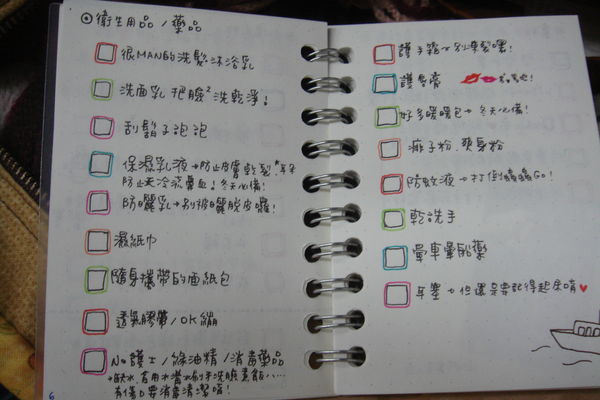 ⊙衛生用品/藥品
很MAN的洗髮沐浴乳
洗面乳 把臉²洗乾淨!
刮鬍子泡泡
保濕乳液→防止皮膚乾裂
防止天冷流鼻血!冬天必備!
防曬乳→別被曬脫皮囉!
濕紙巾
隨身攜帶的面紙包
透氣膠帶/OK繃
No護士/綠油精/消毒藥品
有傷口要消毒清潔唷!
6
護手霜→別凍裂喔!
護唇膏
好多暖暖包→冬天必備!
痱子粉.爽身粉
防蚊液→打倒蟲蟲GO!
乾洗手
暈車暈船藥
耳塞→但還是要記得起床唷♥